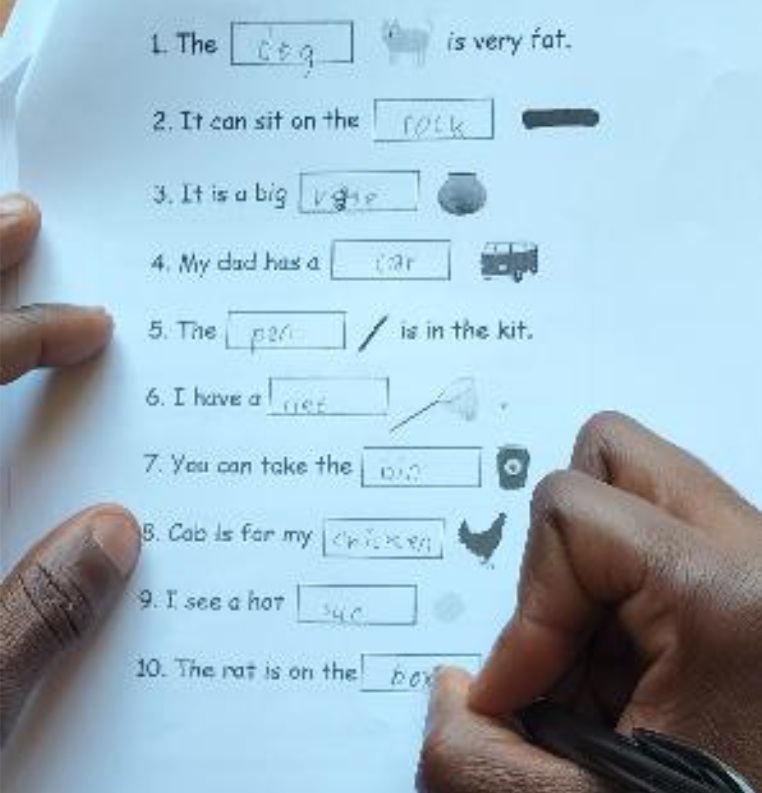 1. The dog is very fat.
2. It can sit on the rock
3. It is a big vase
4. My dad has a car
5. The pen is in the kit.
6. I have a net .
7. You can take the bin
8. Cob is for my chicken
9. I see a hot sun
10. The rat is on the box